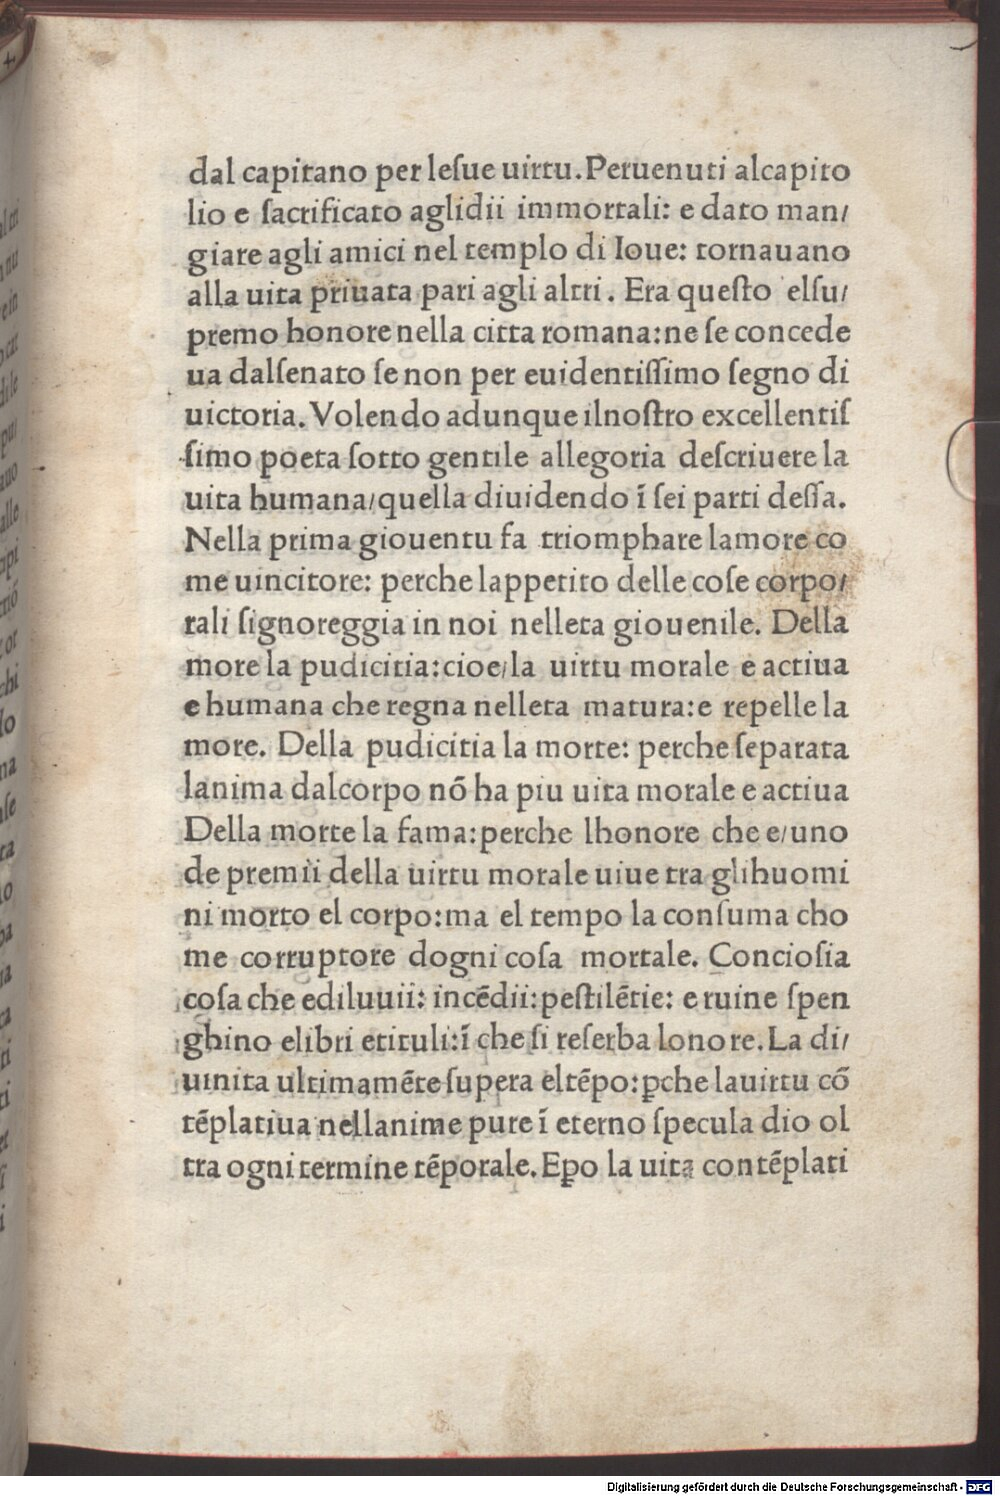 dal capitano per leſue uirtu.Peruenuti alcapito
lio e ſacrificato aglidii immortali: e dato man/
giare agli amici nel templo di Ioue: tornauano
alla uita priuata pari agli altri. Era queſto elſu/
premo honore nella citta romana:ne ſe concede
ua dalſenato ſe non per euidentiſſimo ſegno di
uictoria. Volendo adunque ilnoſtro excellentiſ
ſimo poeta ſotto gentile allegoria deſcriuere la
uita humana/quella diuidendo ī ſei parti deſſa.
Nella prima giouentu fa triomphare lamore co
me uincitore: perche lappetito delle coſe corpo/
rali ſignoreggia in noi nelleta giouenile. Della
more la pudicitia:cioe/la uirtu morale e actiua
e humana che regna nelleta matura:e repelle la
more. Della pudicitia la morte: perche ſeparata
lanima dalcorpo nō ha piu uita morale e actiua
Della morte la fama:perche lhonore che e/uno
de premii della uirtu morale uiue tra glihuomi
ni morto el corpo:ma el tempo la conſuma cho
me corruptore dogni coſa mortale. Concioſia
coſa che ediluuii: incēdii:peſtilētie: e ruine ſpen
ghino elibri etituli:ī che ſi reſerba lonore.La di/
uinita ultimamēte ſupera eltēpo:ꝑche lauirtu cō
tēplatiua nellanime pure ī eterno ſpecula dio ol
tra ogni termine tēporale.Eꝑo la uita contēplati
Digitalisierung gefördert durch die Deutsche Forschungsgemeinschaft - DFG